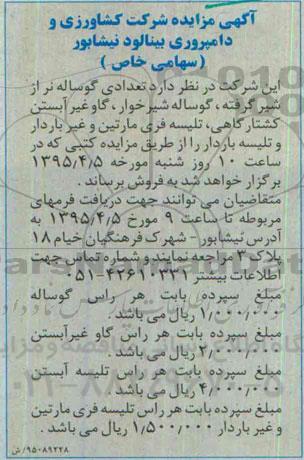 آگهی مزایده شرکت کشاورزی و
دامپروری بینالود نیشابور
(سهامی خاص)
این شرکت در نظر دارد تعدادی گوساله نر از
شیر گرفته ، گوساله شیرخوار ، گاو غیر آبستن
کشتارگاهی، تلیسه فری مارتین و غیر باردار
و تلیسه باردار را از طریق مزایده کتبی که در
ساعت ۱۰ روز شنبه مورخه ۱۳۹۵/۴/۵
برگزار خواهد شد به فروش برساند .
متقاضیان می توانند جهت دریافت فرمهای
مربوطه تا ساعت ۹ مورخ ۱۳۹۵/۴/۵ به
آدرس نیشابور - شهرک فرهنگیان خیام ۱۸
پلاک ۳ مراجعه نمایند و شماره تماس جهت
اطلاعات بیشتر ۴۲۶۱۰۳۳۱-۰۵۱
مبلغ سپرده بابت هر راس گوساله
۱/۰۰۰/۰۰۰ ریال می باشد .
مبلغ سپرده بابت هر راس گاو غیرآبستن
۲/۰۰۰/۰۰۰ ریال می باشد .
مبلغ سپرده بابت هر راس تلیسه آبستن
۴/۰۰۰/۰۰۰ ریال می باشد .
مبلغ سپرده بابت هر راس تلیسه فری مارتین
و غیر باردار ۱/۵۰۰/۰۰۰ ریال می باشد .
۹۵۰۸۹۲۲۸/ ش